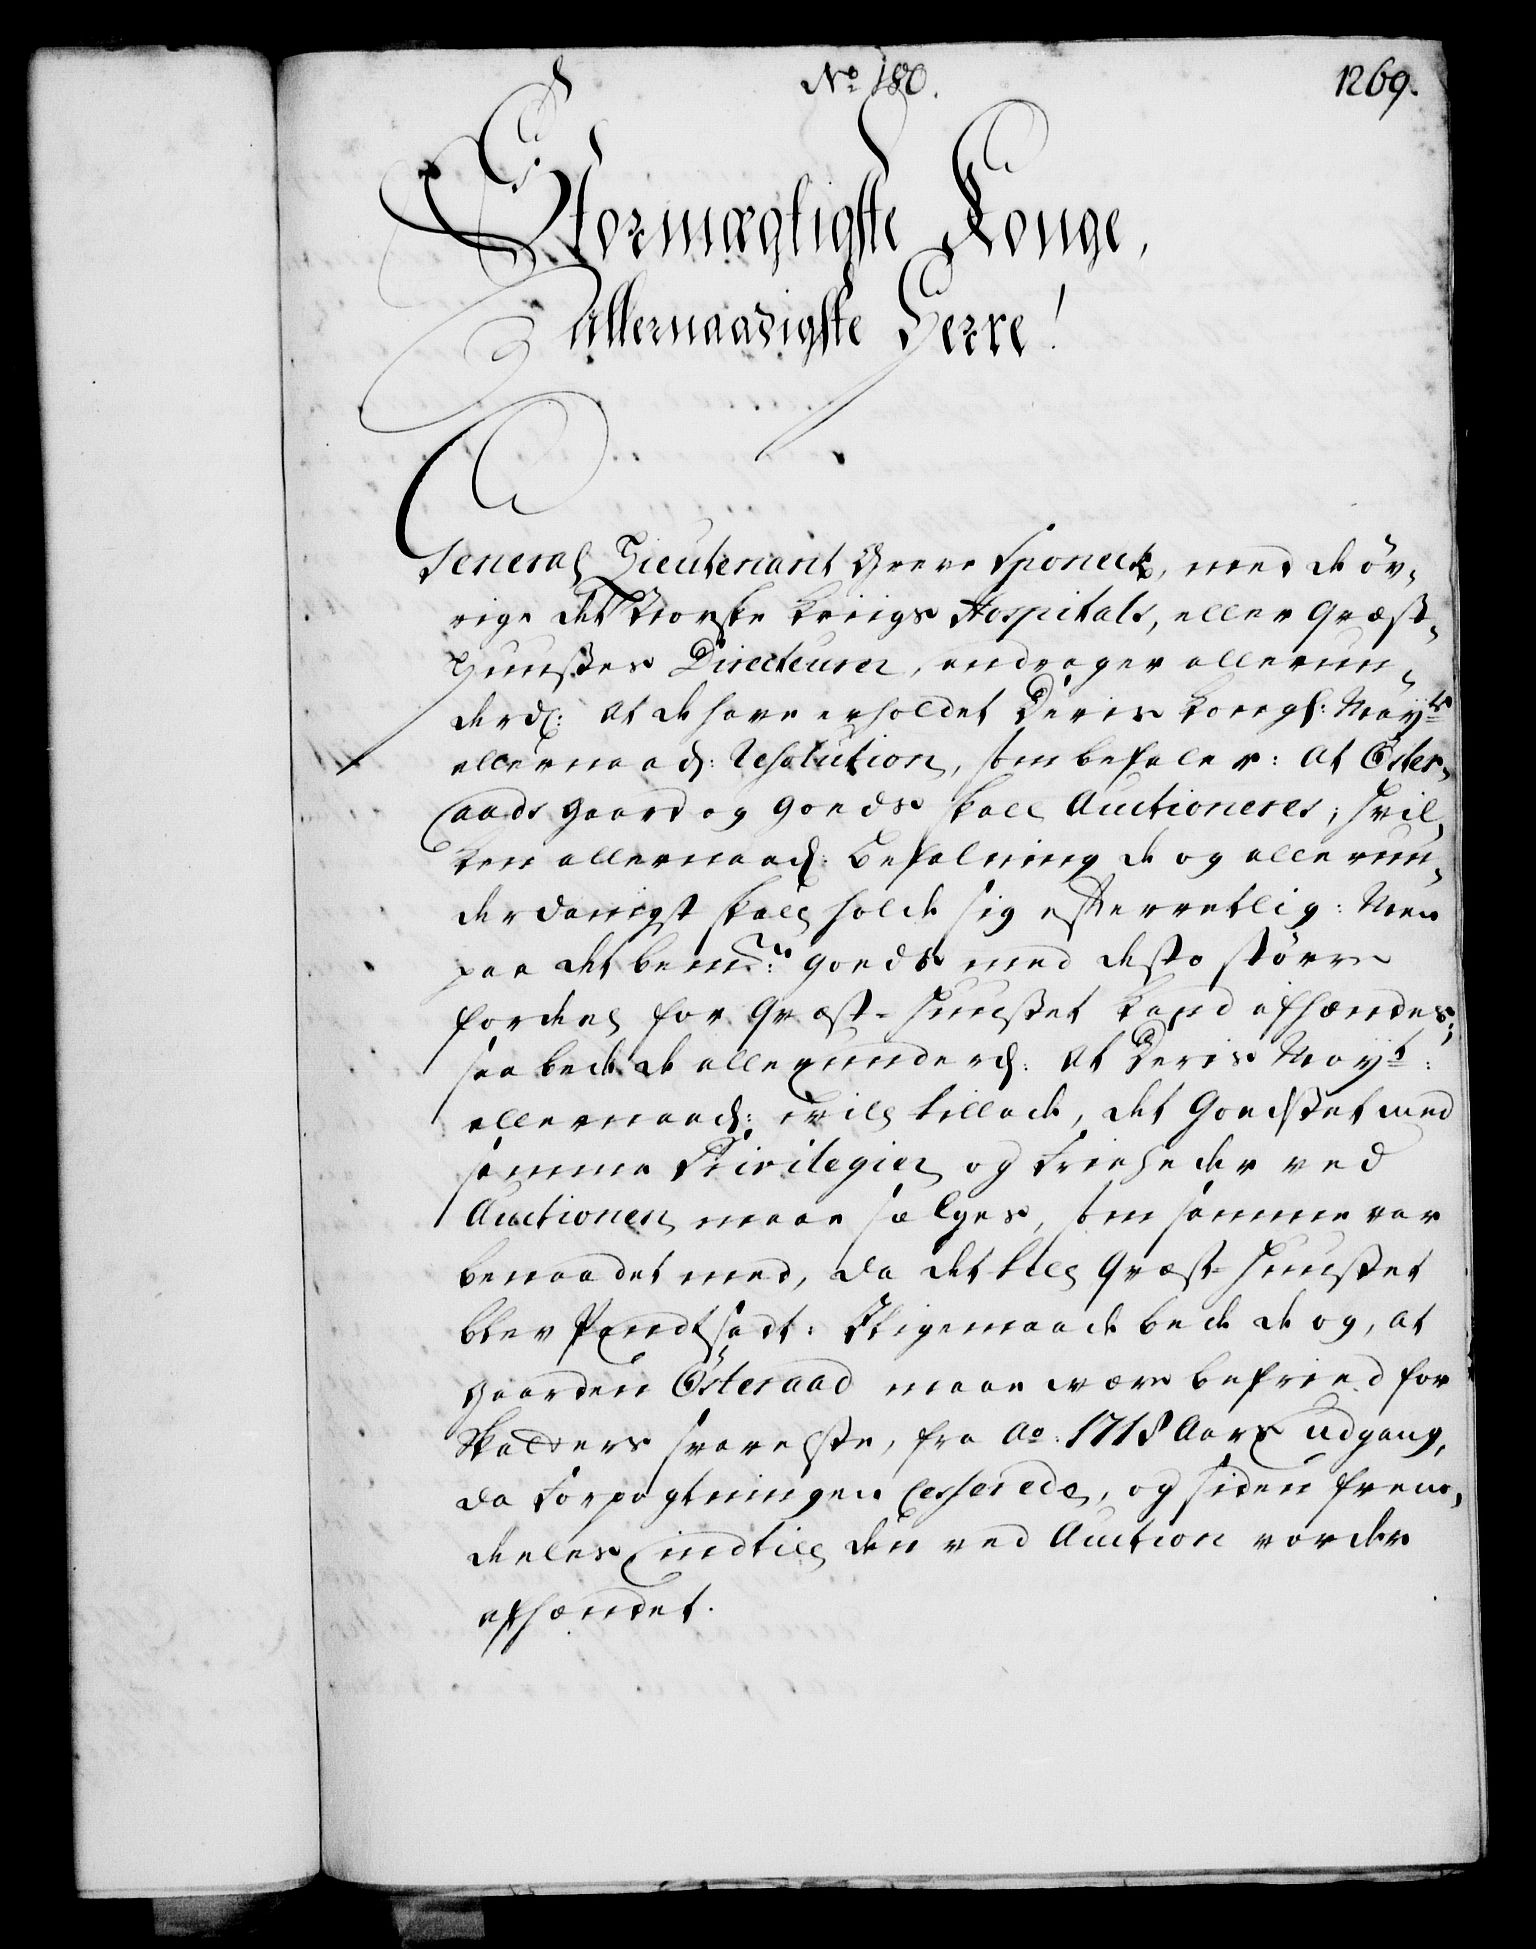 No 180.
1269.
Stormægtigste Konge,
Allernaadigste Herre!
General Lieutenant Greve Sponeck, med de öv-
rige det Norske Kriigs Hospitals, eller Qvæst-
Huußes Directeurer, andrager allerun-
derd: at de have erholdet Deris Kongl: Mayts
allernaad: Resolution, som befaler: at Öster-
aads Gaard og Goeds skall Auctioneres; hvil-
ken allernaad: Befalning de og allerun-
derdanigst skall holde sig efterretlig: Men
paa det bemte: Goeds med desto större
fordeel for Qvæst-Huußet kand afhændes;
saa bede de allerunderd: at Deris Mayt:
allernaad: will tillade, det Goedset med
samme Privilegier og Friheder ved
Auctionen maae sælges, som samme var
benaadet med, da det till Qvæst-Huußet
blev Pendtsadt: Ligemaade bede de og, at
Gaarden Österaad maae være befried for
Skatters svarelse, fra Ao: 1718 Aars udgang,
da Forpagtningen Cesserede, og siden frem-
deeles indtill den ved Auction vorder
afhændet.